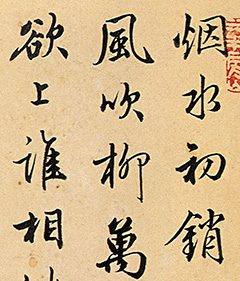 烟水初銷
風吹柳萬
欲上誰相